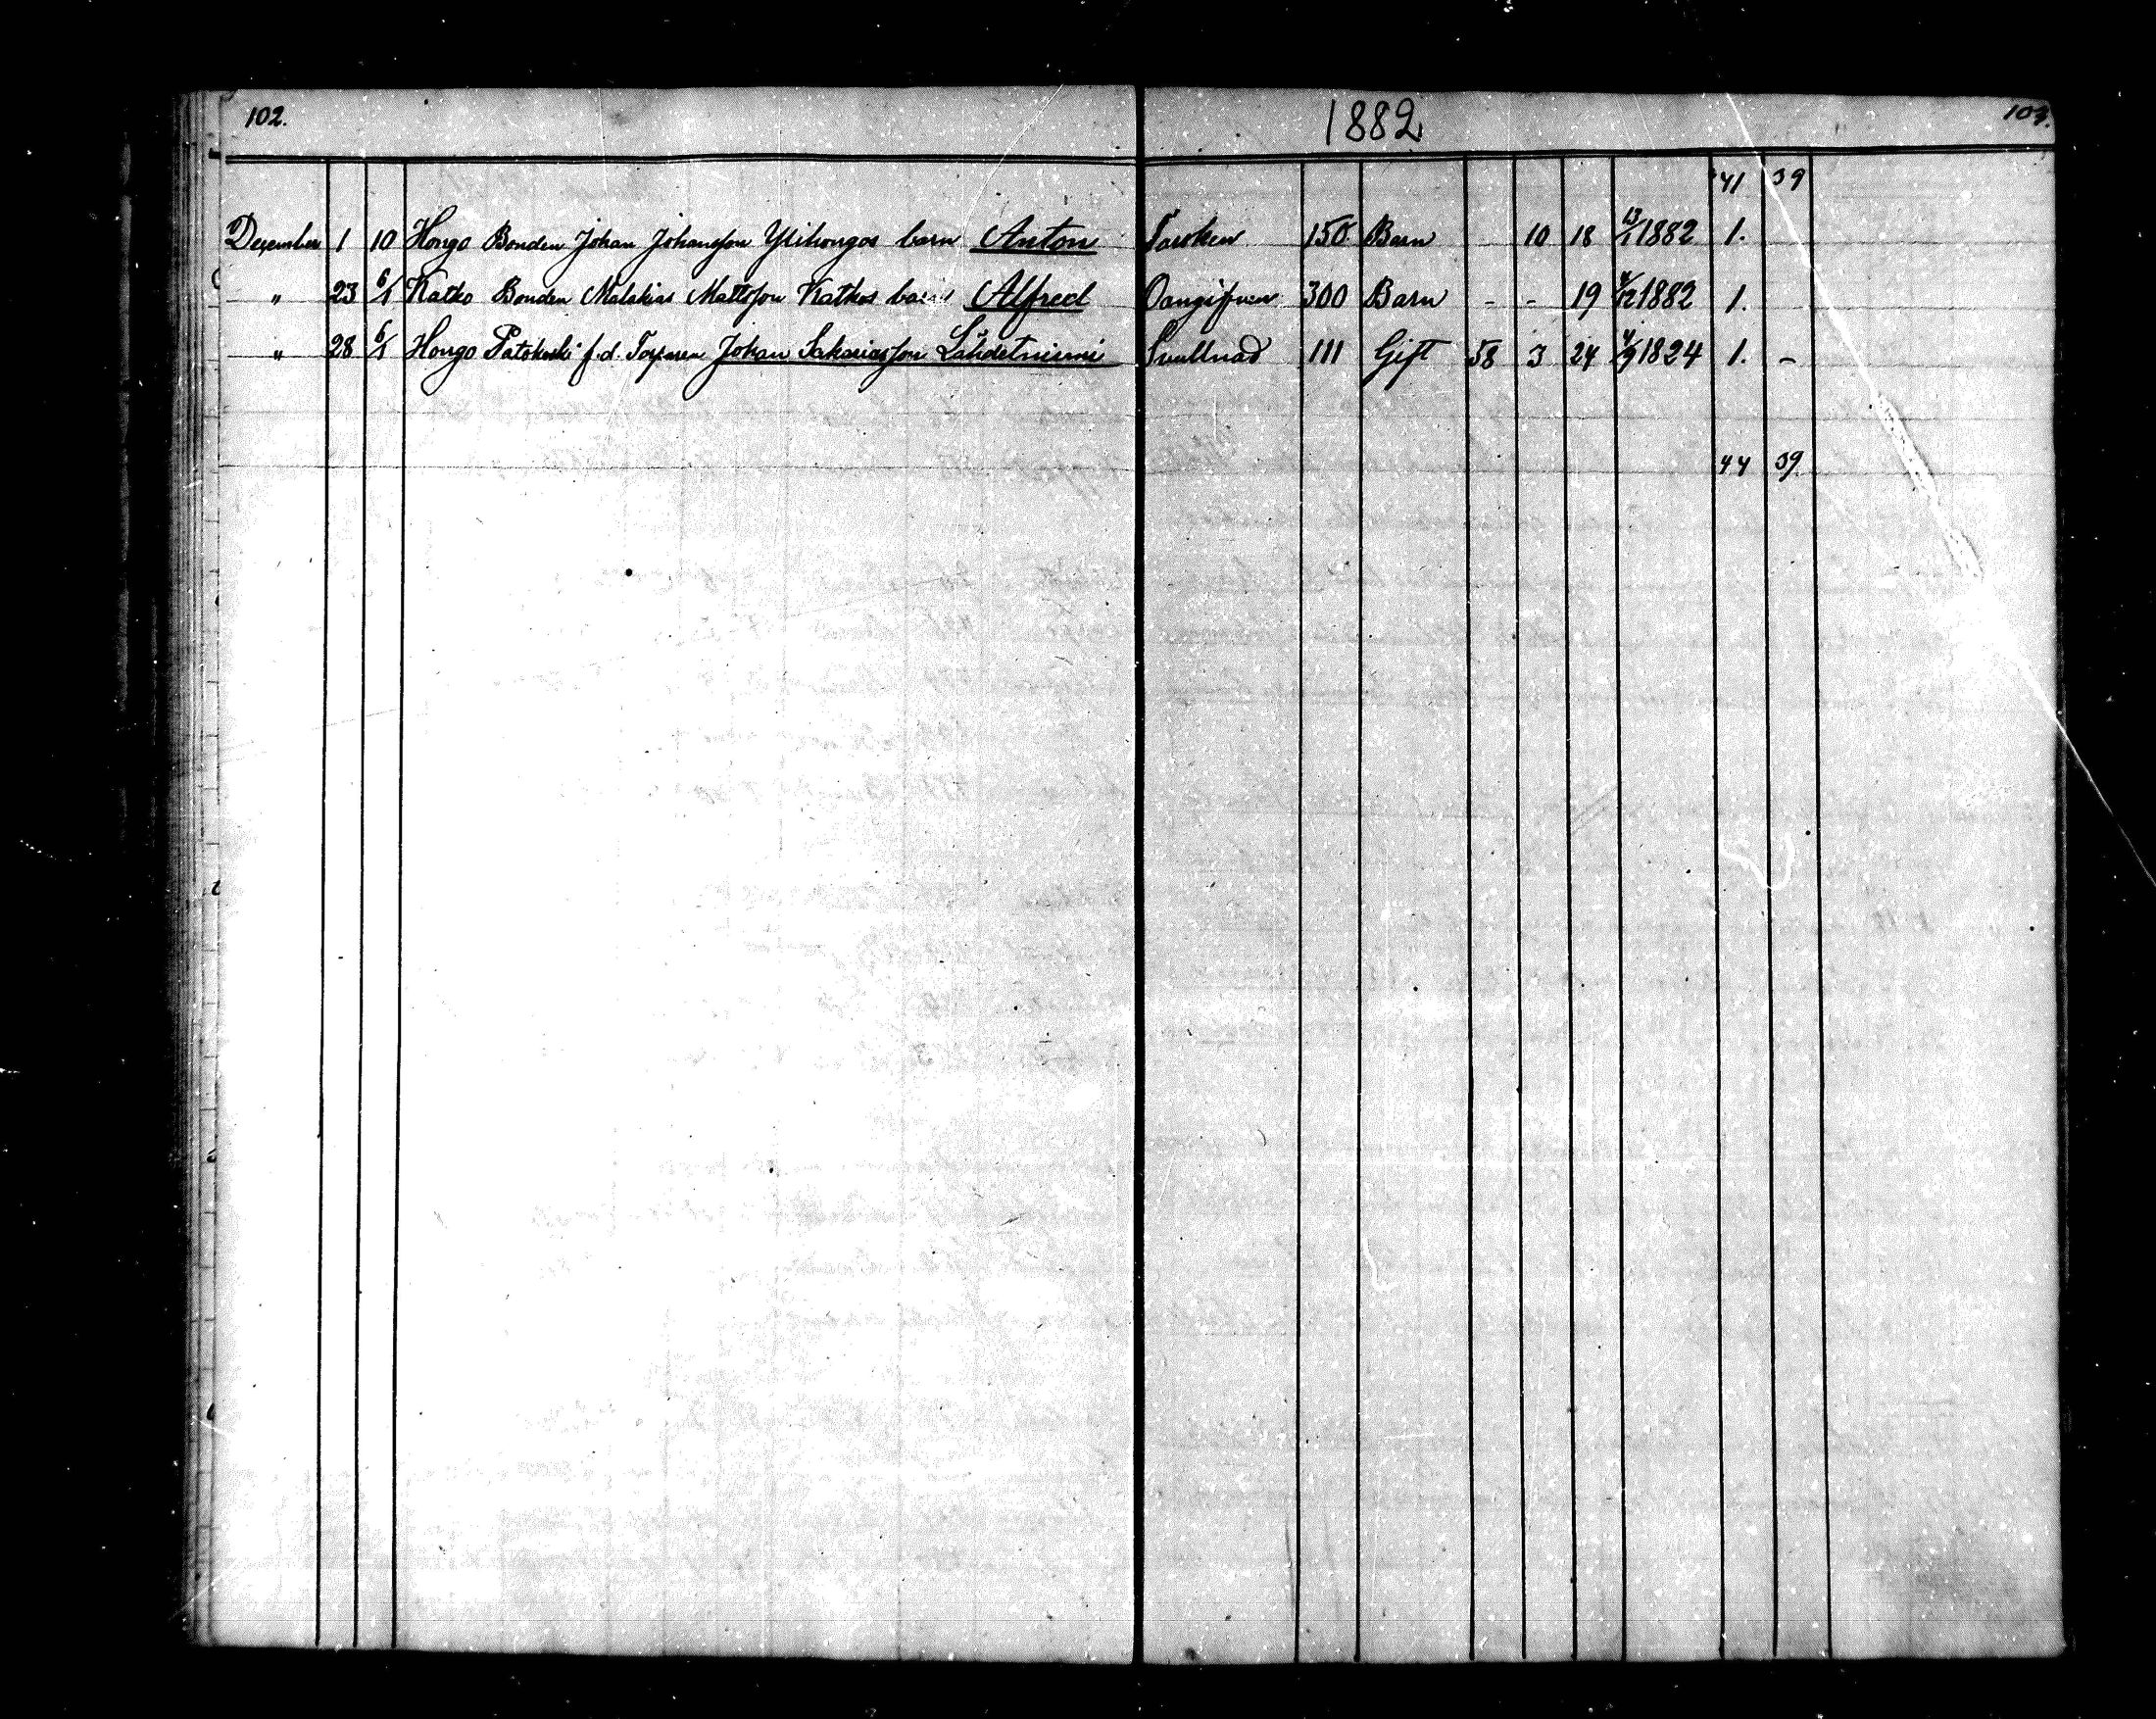 102.
1882
103.
41 39
December 1 10 Hongo Bonden Johan Johansson Ylihongos barn Anton Torsken 150 Barn - 10 18 13/1 1882 1.
" 23 6/1 Katko Bonden Malakias Mattsson Katkos barn Alfred Oangifven 300 Barn - - 19 4/12 1882 1.
" 28 6/1 Hongo Patokoski f.d. Torparen Johan Sakariasson Lähdetniemi 111 Gift 58 3 24 4/9 1824 1. -
44 39